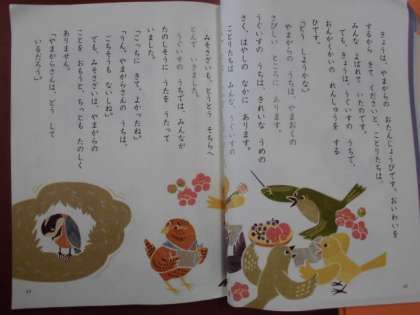 きょうは、やまがらの おたんじょうびです。おいわいを
するから きて くださいと、ことりたちは、
みんな よばれて いたのです。
でも、きょうは、うぐいすの うちで、
おんがくかいの れんしゅうを する
ひです。
「どう しようかな。」
やまがらの うちは、やまおくの
さびしい ところに あります。
うぐいすの うちは、きれいな うめの
さく、はやしの なかに あります。
ことりたちは みんな、うぐいすの
みそさざいも、とうとう そちらへ
とんで いきました。
うぐいすの うちでは、みんなが
たのしそうに うたを うたって
いました。
「こっちに きて、よかったね。」
「うん。やまがらさんの うちは、
ごちそうも ないしね。」
でも、みそさざいは、やまがらの
ことを おもうと、ちっとも たのしく
ありません。
「やまがらさんは、どう して
いるだろう。」